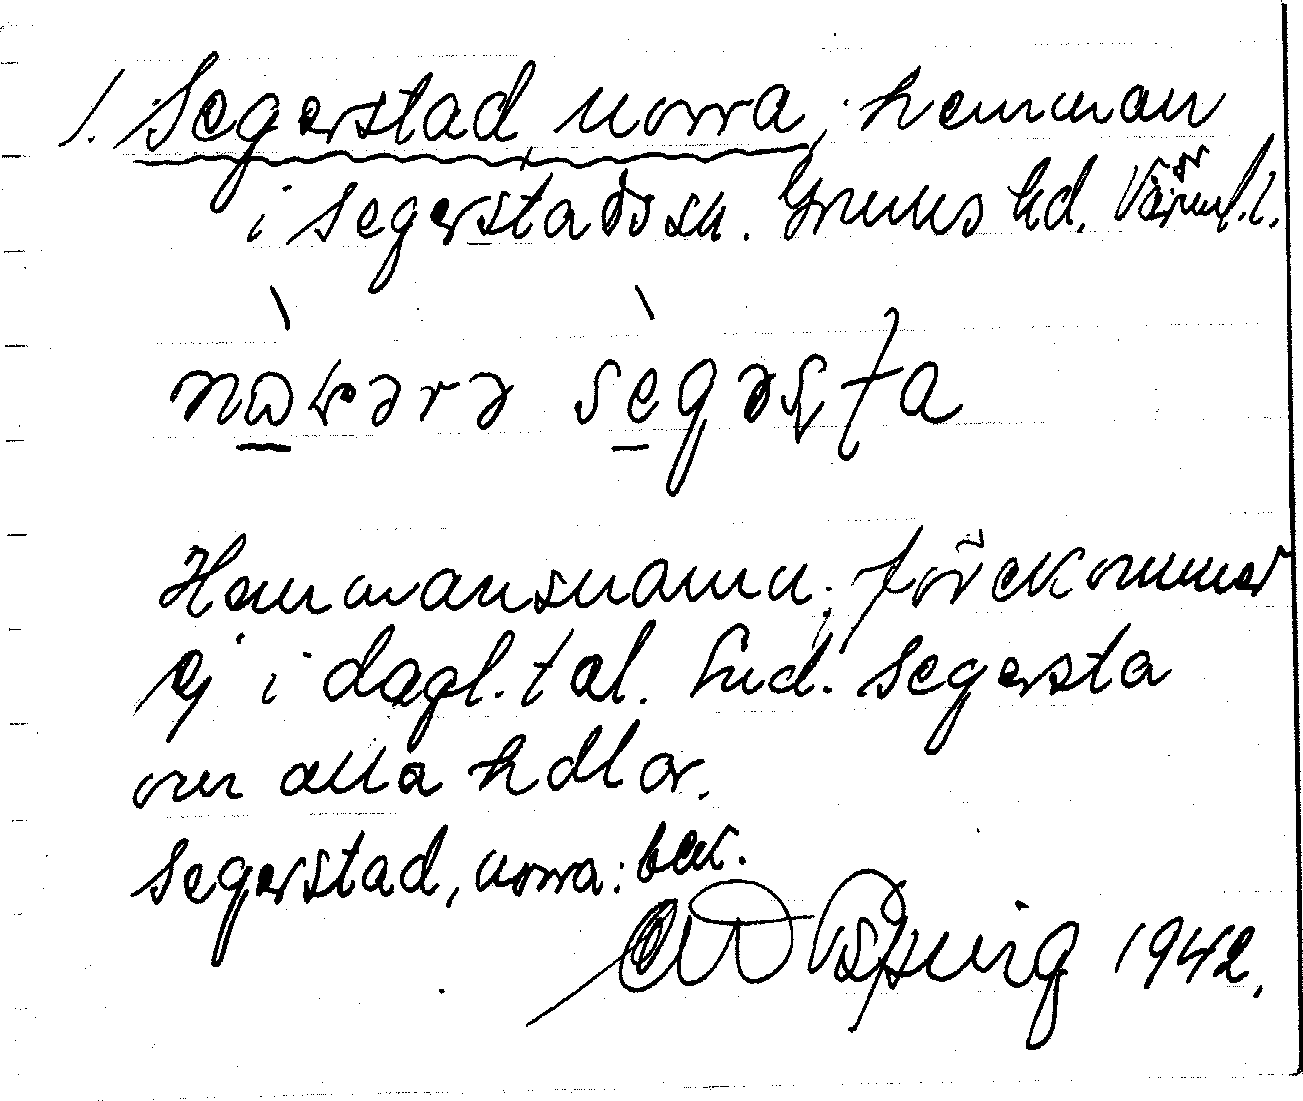 1. Segerstad, norra, hemman
i Segerstads sn. Grums hd. Värml. l.
Hemmansnamn; förekommer
ej i dagl. tal. End. Segersta
om alla hdlar.
Segerstad, norra: bek.
1942.